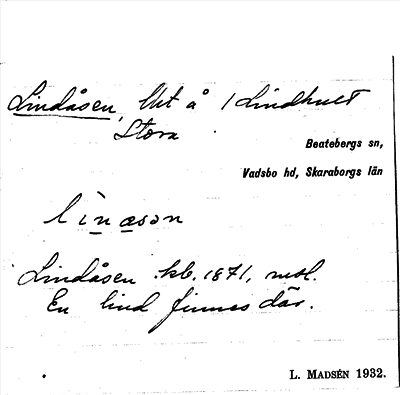 Lindåsen, lht å / Lindhult
Stora
Beatebergs sn,
Vadsbo hd, Skaraborgs län
lìnæsən
Lindåsen kb. 1871, msl.
En lind finnes där.
L. MADSÉN 1932.